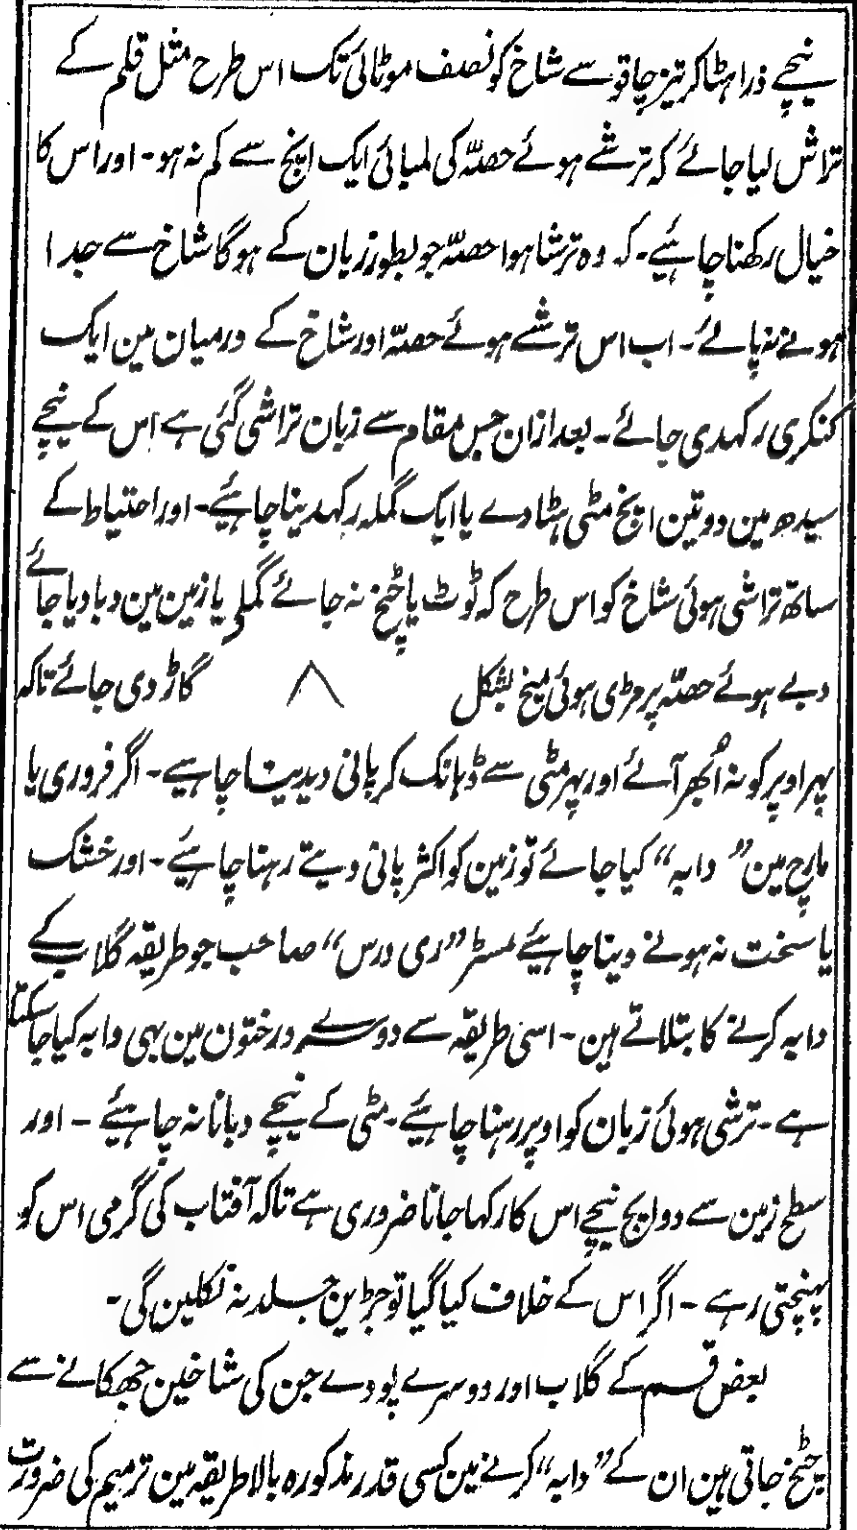 نیچے ذرا ہٹا کر تیز چاقو سے شاخ کو نصف موٹائی تک اس طرح مثل قلم کے
تراش لیا جائے کہ ترشے ہوئے حصّہ کی لمبائی ایک اینچ سے کم نہ ہو۔ اور اس کا
خیال رکھنا چاہئیے۔ کہ وہ ترشا ہوا حصّہ جو بطور زبان کے ہوگا شاخ سے جدا
ہونے نہ پائے۔ اب اس ترشے ہوئے حصّہ اور شاخ کے درمیان مین ایک
کنکری رکہدی جائے۔ بعد ازان جس مقام سے زبان تراشی گئی ہے اس کے نیچے
سیدھ مین دو تین اینچ مٹی ہٹا دے یا ایک گملہ رکہدینا چاہئیے۔ اور احتیاط کے
ساتھ تراشی ہوئی شاخ کو اس طرح کہ ٹوٹ یا چٹخ نہ جائے گملی یا زمین مین دبا دیا جائے
دبے ہوئے حصّہ پر مڑی ہوئی میخ بشکل ∧ گاڑ دی جائے تاکہ
پہر اوپر کو نہ اُبھر آئے اور پہر مٹی سے ڈہانک کر پانی دیدینا چاہیے۔ اگر فروری یا
مارچ مین ”دابہ“ کیا جائے تو زمین کو اکثر پانی دیتے رہنا چاہئیے۔ اور خشک
یا سخت نہ ہونے دینا چاہئیے مسٹر ”ری ورس“ صاحب جو طریقہ گلاب کے
دابہ کرنے کا بتلاتے ہین۔ اسی طریقہ سے دوسرے درختون مین بہی دابہ کیا جا سکتا
ہے۔ ترشی ہوئی زبان کو اوپر رہنا چاہئیے۔ مٹی کے نیچے دبانا نہ چاہئیے۔ اور
سطح زمین سے دو اینچ نیچے اس کا رکہا جانا ضروری ہے تاکہ آفتاب کی گرمی اس کو
پہنچتی رہے۔ اگر اس کے خلاف کیا گیا تو جڑین جلد نہ نکلین گی۔
بعض قسم کے گلاب اور دوسرے پودے جن کی شاخین جھکانے سے
چٹخ جاتی ہین ان کے ”دابہ“ کرنے مین کسی قدر مذکورہ بالا طریقہ مین ترمیم کی ضرورت